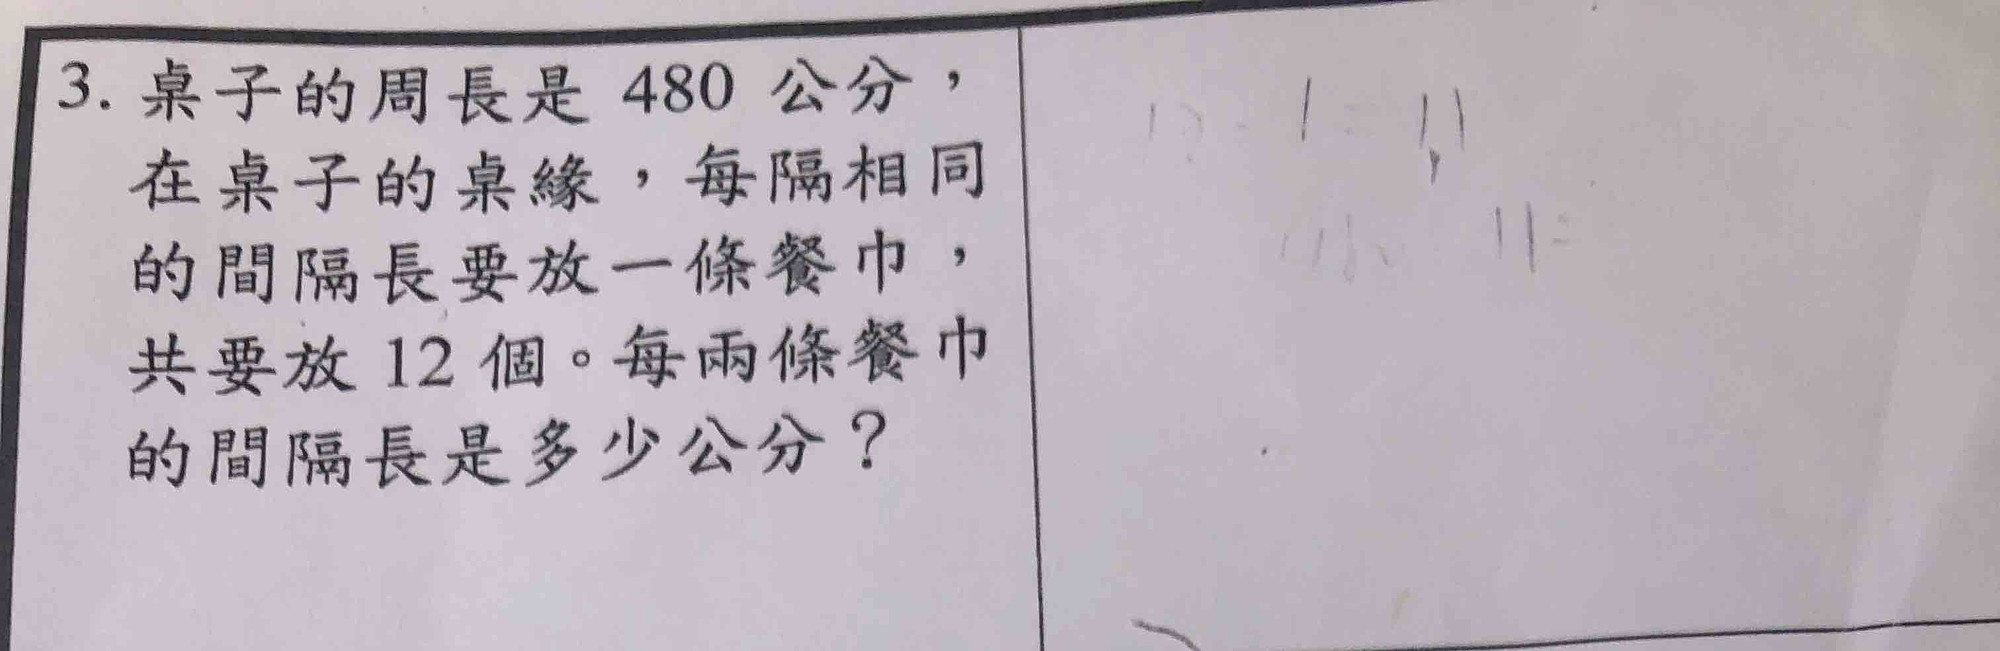 3. 桌子的周長是 480 公分，
在桌子的桌緣，每隔相同
的間隔長要放一條餐巾，
共要放 12 個。每兩條餐巾
的間隔長是多少公分？
1 11
11=